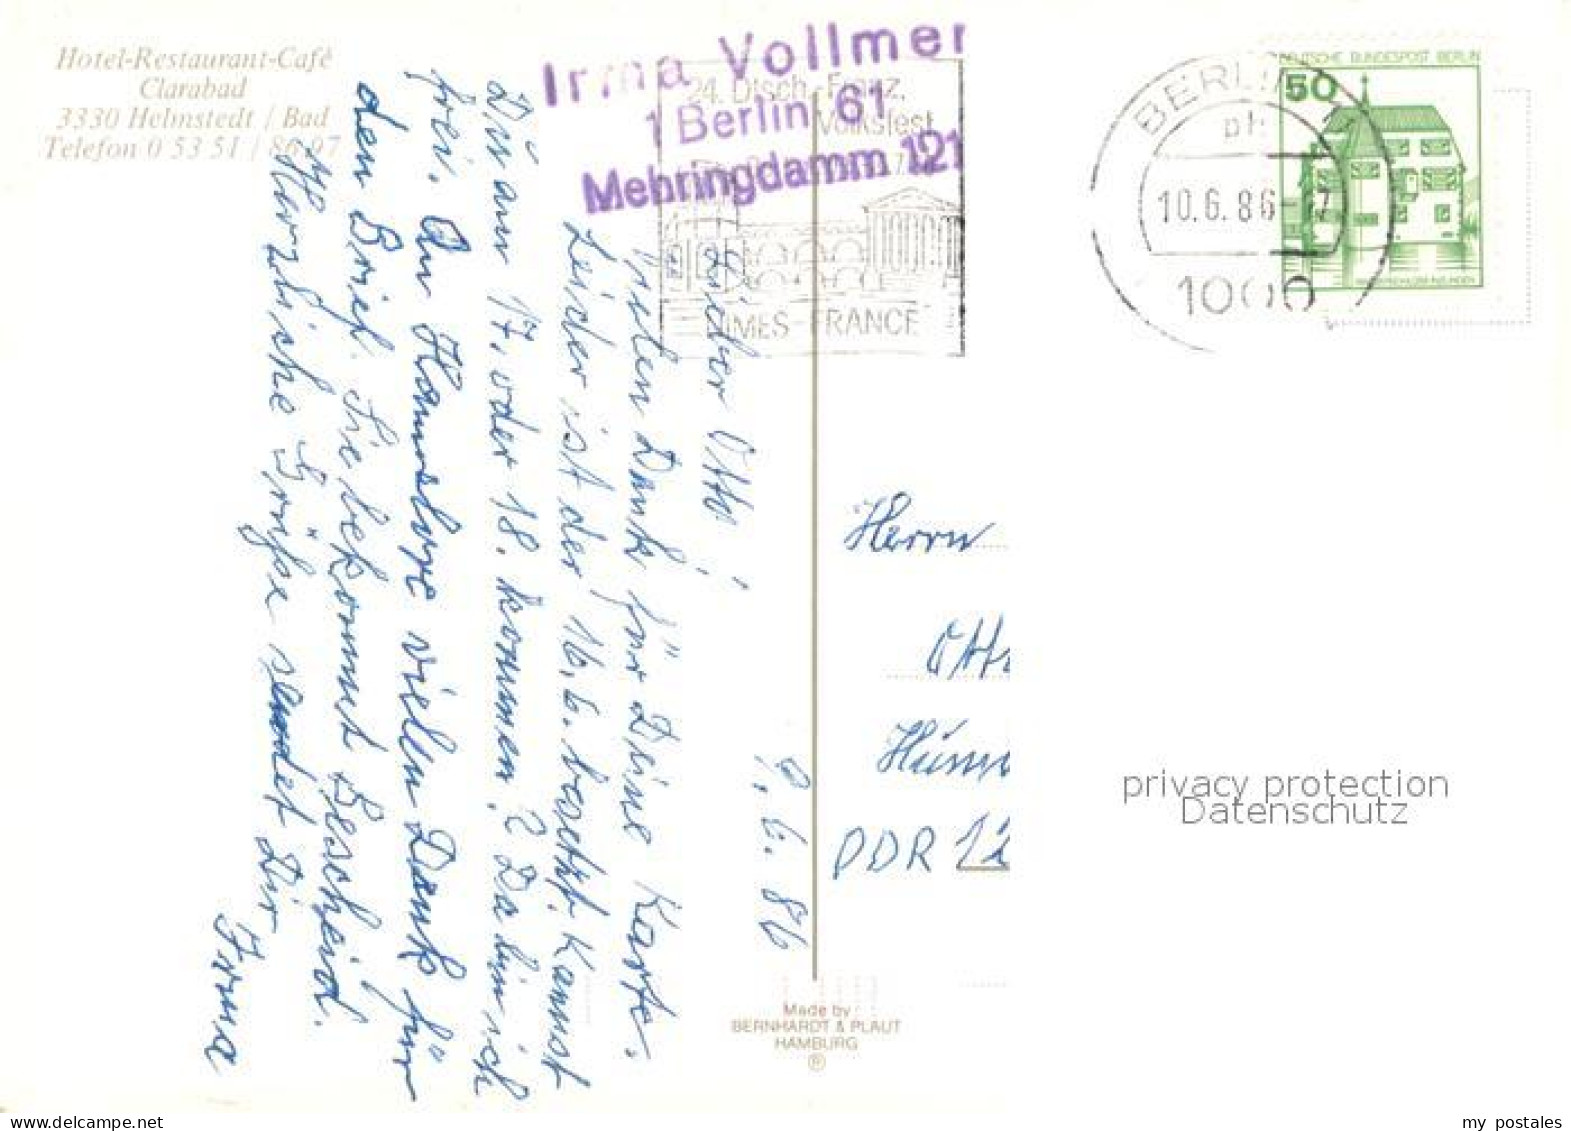 Hotel-Restaurant-Café
Clarabad
3330 Helmstedt / Bad
Telefon 0 53 51 / 86 97
Irma Vollmer
1 Berlin 61
Mehringdamm 121
24. Dtsch.-Franz.
Volksfest
NIMES-FRANCE
BERLIN
10.6.86
1000
DEUTSCHE BUNDESPOST BERLIN
50
9.6.86
Lieber Otto!
Vielen Dank für Deine Karte.
Leider ist der 16.6. besetzt. Kannst
Du am 17. oder 18. kommen? Da bin ich
frei. An Hannelore vielen Dank für
den Brief. Sie bekommt Bescheid.
Herzliche Grüße sendet Dir
Irma
Herrn
DDR
Made by
BERNHARDT & PLAUT
HAMBURG
®
privacy protection
Datenschutz
my postales